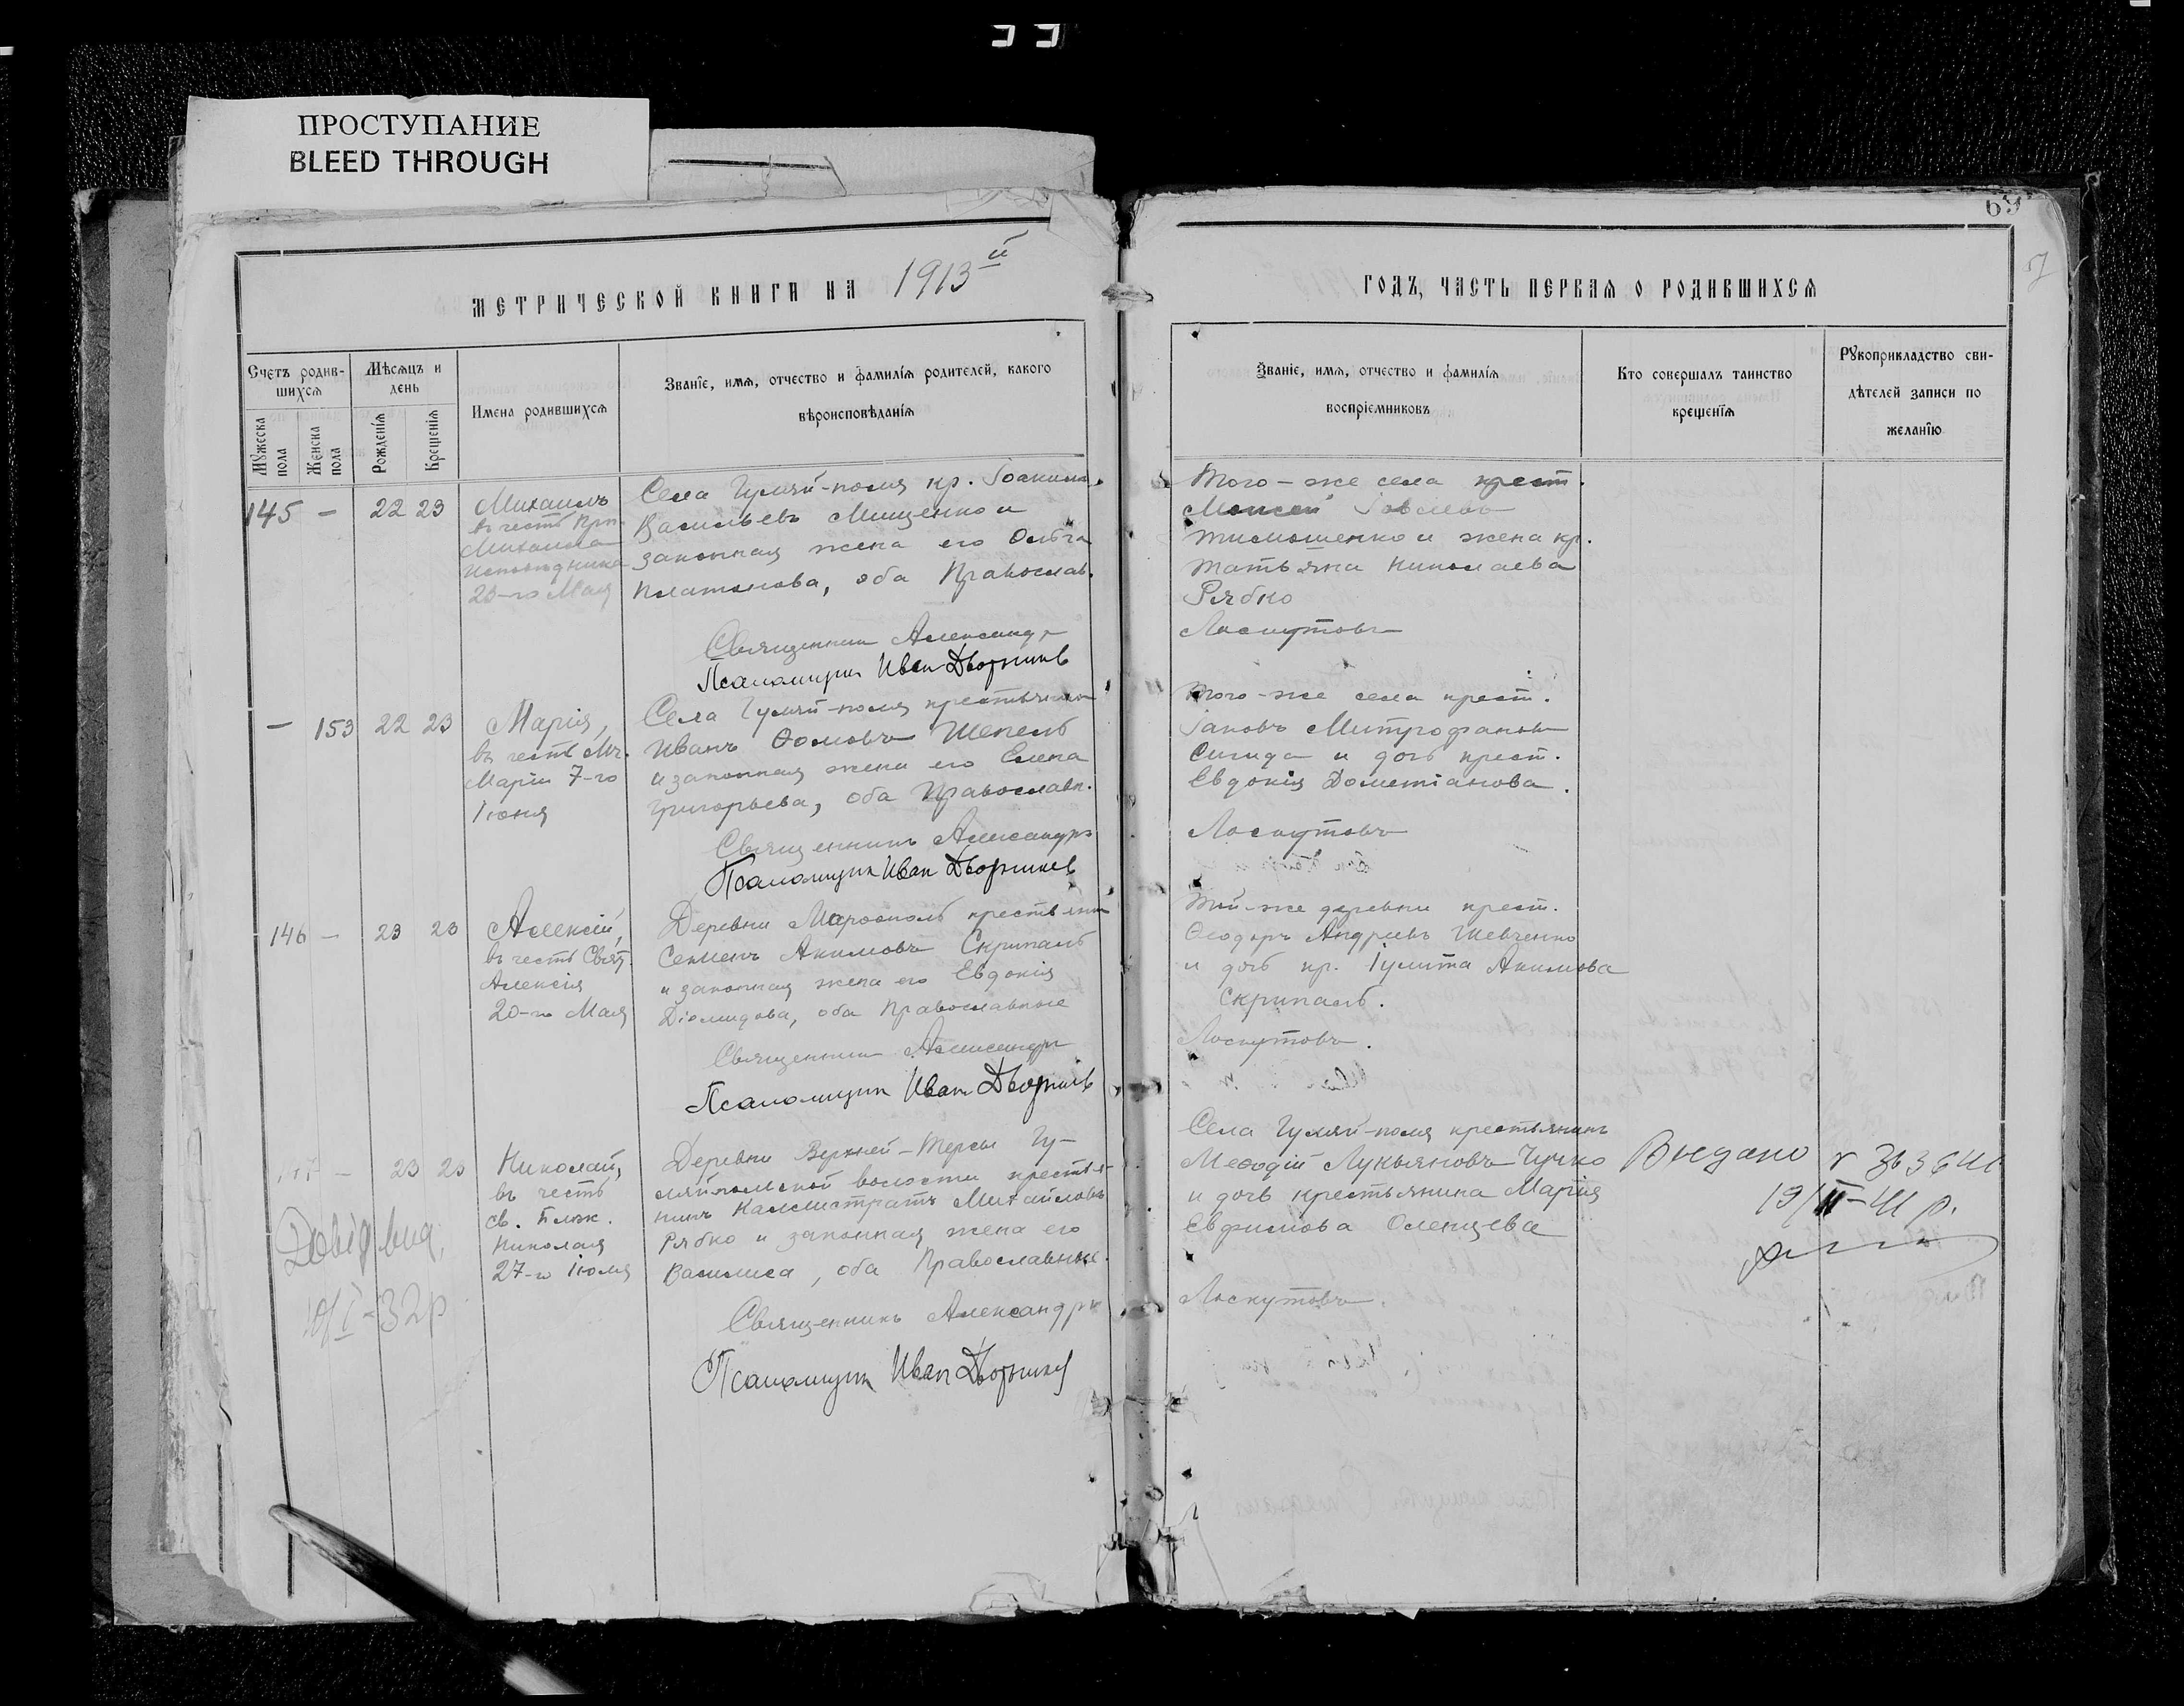 ПРОСТУПАНИЕ
BLEED THROUGH
69
МЕТРИЧЕСКОЙ КНИГИ НА 1913й
Счетъ родив-
шихся
Мужеска
пола
Женска
пола
Мѣсяцъ и
день
Рожденія
Крещенія
Имена родившихся
Званіе, имя, отчество и фамилія родителей, какого
вѣроисповѣданія
145 - 22 23
Михаилъ
въ честь Прп.
Михаила
исповѣдника
23-го Мая
Села Гуляй-поля кр. Іоакимъ
Васильевъ Мищенко и
законная жена его Ольга
Платонова, оба Православ.
Священникъ Александръ
Псаломщик Иван Дворников
- 153 22 23
Марія,
въ честь Мч.
Маріи 7-го
Іюня
Села Гуляй-поля крестьянинъ
Иванъ Ѳомовъ Шепель
и законная жена его Елена
Григорьева, оба Православн.
Священникъ Александръ
Псаломщик Иван Дворников
146 - 23 23
Алексій,
въ честь Свят.
Алексія
20-го Мая
Деревни Марфополь крестьянинъ
Семенъ Акимовъ Скрипаль
и законная жена его Евдокія
Діомидова, оба Православные
Священникъ Александръ
Псаломщик Иван Дворников
- 23 23
Николай,
въ честь
св. Блаж.
Николая
27-го Іюля
Деревни Верхней-Терсы Гу-
ляйпольской волости крестья-
нинъ Каллистратъ Михайловъ
Рябко и законная жена его
Василиса, оба Православные.
Священникъ Александръ
Псаломщик Иван Дворников
Довід вид.
10/I-32р
ГОДЪ, ЧАСТЬ ПЕРВАЯ О РОДИВШИХСЯ
Званіе, имя, отчество и фамилія
воспріемниковъ
Кто совершалъ таинство
крещенія
Рукоприкладство сви-
дѣтелей записи по
желанію
Того-же села крест.
Моисей Іовлевъ
Тимошенко и жена кр.
Татьяна Николаева
Рябко
Лоскутовъ
Того-же села крест.
Іаковъ Митрофановъ
Сигида и дочь крест.
Евдокія Дометіанова.
Лоскутовъ
Той-же деревни крест.
Ѳеодоръ Андреевъ Шевченко
и дочь кр. Іулита Акимова
Скрипаль.
Лоскутовъ.
Села Гуляй-поля крестьянинъ
Меѳодій Лукьяновъ Чучко
и дочь крестьянина Марія
Евфимова Оленцева
Лоскутовъ.
19/II-41 р.